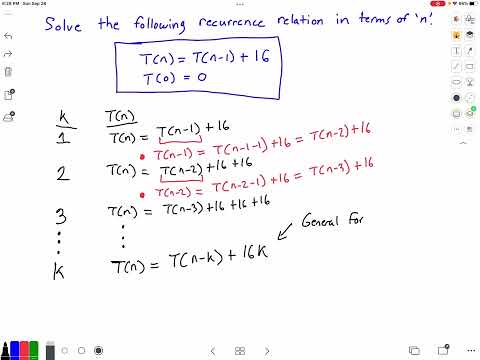 4:28 PM Sun Sep 26
Solve the following recurrence relation in terms of 'n'!
T(n) = T(n-1) + 16
T(0) = 0
k T(n)
1 T(n) = T(n-1) + 16
• T(n-1) = T(n-1-1) + 16 = T(n-2) + 16
2 T(n) = T(n-2) + 16 + 16
• T(n-2) = T(n-2-1) + 16 = T(n-3) + 16
3 T(n) = T(n-3) + 16 + 16 + 16
General For
k T(n) = T(n-k) + 16k